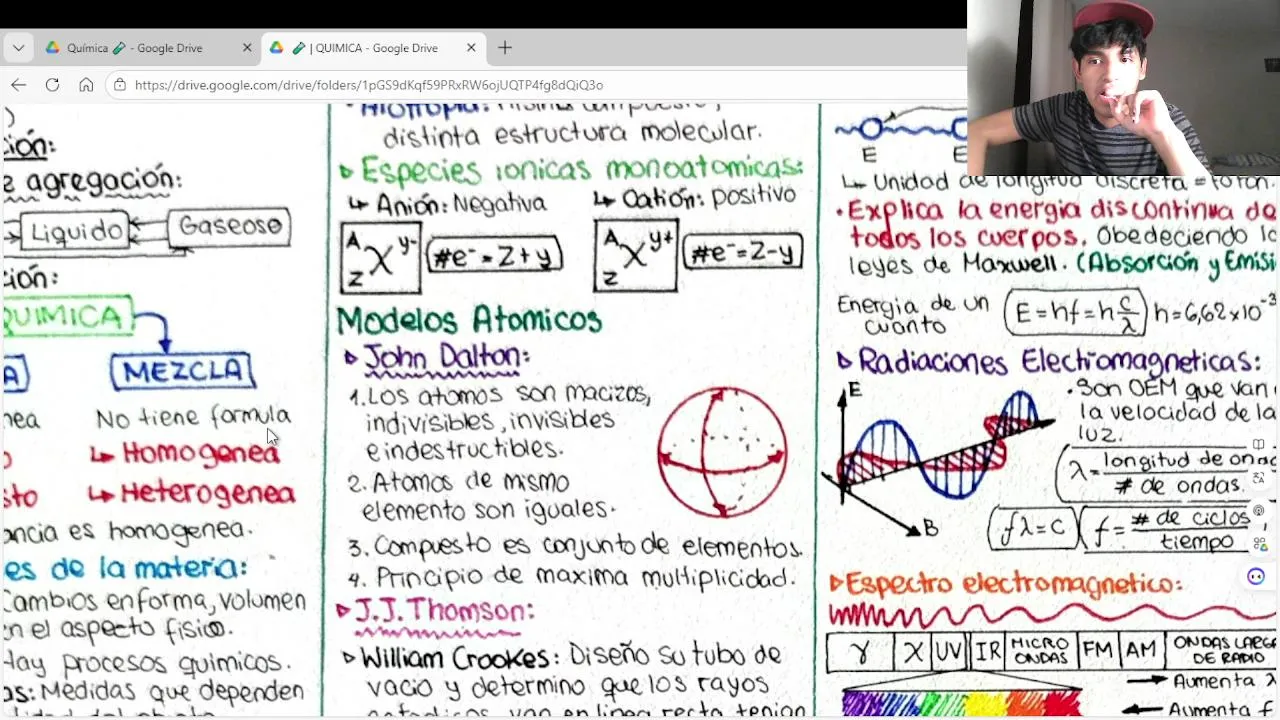 Química - Google Drive
| QUIMICA - Google Drive
https://drive.google.com/drive/folders/1pGS9dKqf59PRxRW6ojUQTP4fg8dQiQ3o
ión:
e agregación:
Liquido
Gaseoso
ión:
QUIMICA
MEZCLA
nea
No tiene formula
Homogenea
sto
Heterogenea
ancia es homogenea.
es de la materia:
Cambios en forma, volumen
n el aspecto fisico.
Hay procesos quimicos.
as: Medidas que dependen
distinta estructura molecular.
Especies ionicas monoatomicas:
Anión: Negativa
Catión: positivo
A X y-
Z
#e⁻ = Z + y
A X y+
Z
#e⁻ = Z - y
Modelos Atomicos
John Dalton:
1. Los atomos son macizos,
indivisibles, invisibles
e indestructibles.
2. Atomos de mismo
elemento son iguales.
3. Compuesto es conjunto de elementos.
4. Principio de maxima multiplicidad.
J.J. Thomson:
William Crookes: Diseño su tubo de
vacio y determino que los rayos
E
E
Unidad de longitud discreta = Foton.
Explica la energia discontinua de
todos los cuerpos. Obedeciendo la
leyes de Maxwell. (Absorción y Emisi
Energia de un
cuanto
E = hf = h c/λ
h = 6,62 x 10⁻³
Radiaciones Electromagneticas:
E
B
• Son OEM que van
la velocidad de la
luz.
λ = longitud de onda
# de ondas.
fλ = c
f = # de ciclos
tiempo
Espectro electromagnetico:
γ X UV IR MICRO ONDAS FM AM ONDAS LARGA DE RADIO
Aumenta λ
Aumenta f